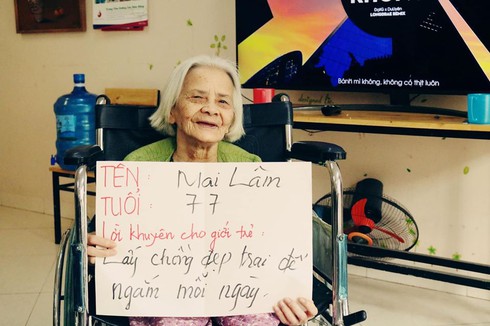 KHÔNG
DatKaa x QuocLuyen
LONGDRAE REMIX
Bánh mì không, không có thịt luôn
TÊN : Mai Lâm
TUỔI : 77
Lời khuyên cho giới trẻ :
Lấy chồng đẹp trai để
ngắm mỗi ngày.